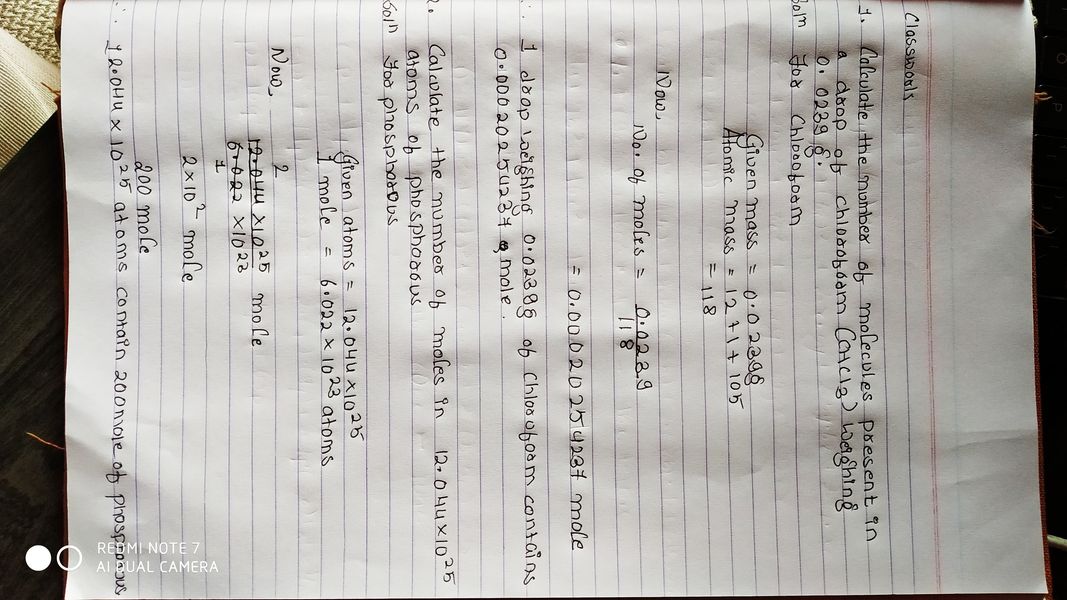 Classwork
1. Calculate the number of molecules present in
a drop of chloroform (CHCl3) weighing
0.0239 g.
Soln For Chloroform
Given mass = 0.0239g
Atomic mass = 12 + 1 + 105
= 118
Now,
No. of moles = 0.0239
118
= 0.00020254237 mole
∴ 1 drop weighing 0.0239g of chloroform contains
0.00020254237 mole.
2. Calculate the number of moles in 12.044 × 10 25
atoms of phosphorous
Soln For phosphorous
Given atoms = 12.044 × 10 25
1 mole = 6.022 × 10 23 atoms
Now,
2
12.044 × 10 25 mole
6.022 × 10 23
1
2 × 10 2 mole
200 mole
∴ 12.044 × 10 25 atoms contain 200 mole of phosphorous
REDMI NOTE 7
AI DUAL CAMERA